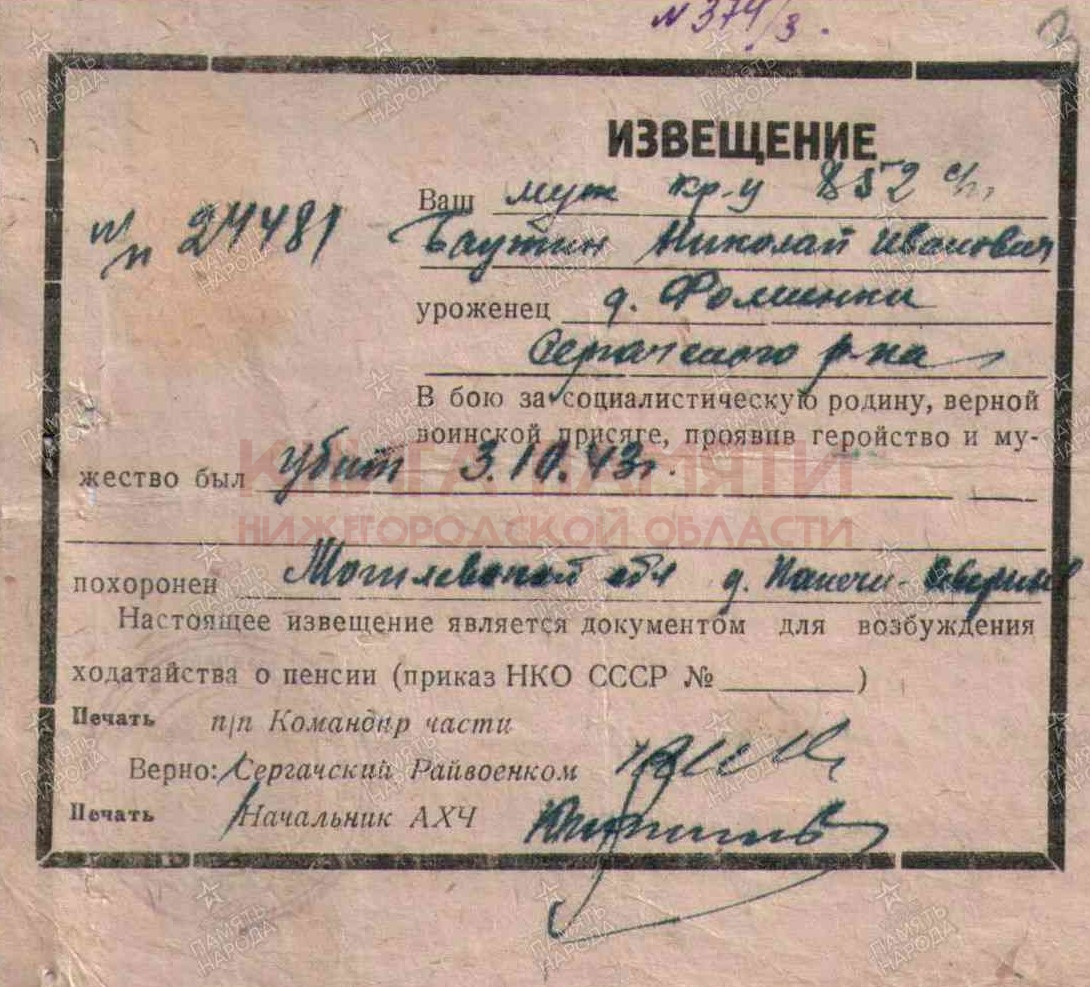 N 374/3.
ИЗВЕЩЕНИЕ
Ваш муж кр-ц 852 с/п
п/п 24481 Баутин Николай Иванович
уроженец д. Фоминки
Сергачского р-на
В бою за социалистическую родину, верной
воинской присяге, проявив геройство и му-
жество был убит 3.10.43г.
КНИГА ПАМЯТИ
НИЖЕГОРОДСКОЙ ОБЛАСТИ
похоронен Могилевской обл д.
Настоящее извещение является документом для возбуждения
ходатайства о пенсии (приказ НКО СССР № )
Печать п/п Командир части
Верно: Сергачский Райвоенком
Печать Начальник АХЧ
ПАМЯТЬ НАРОДА